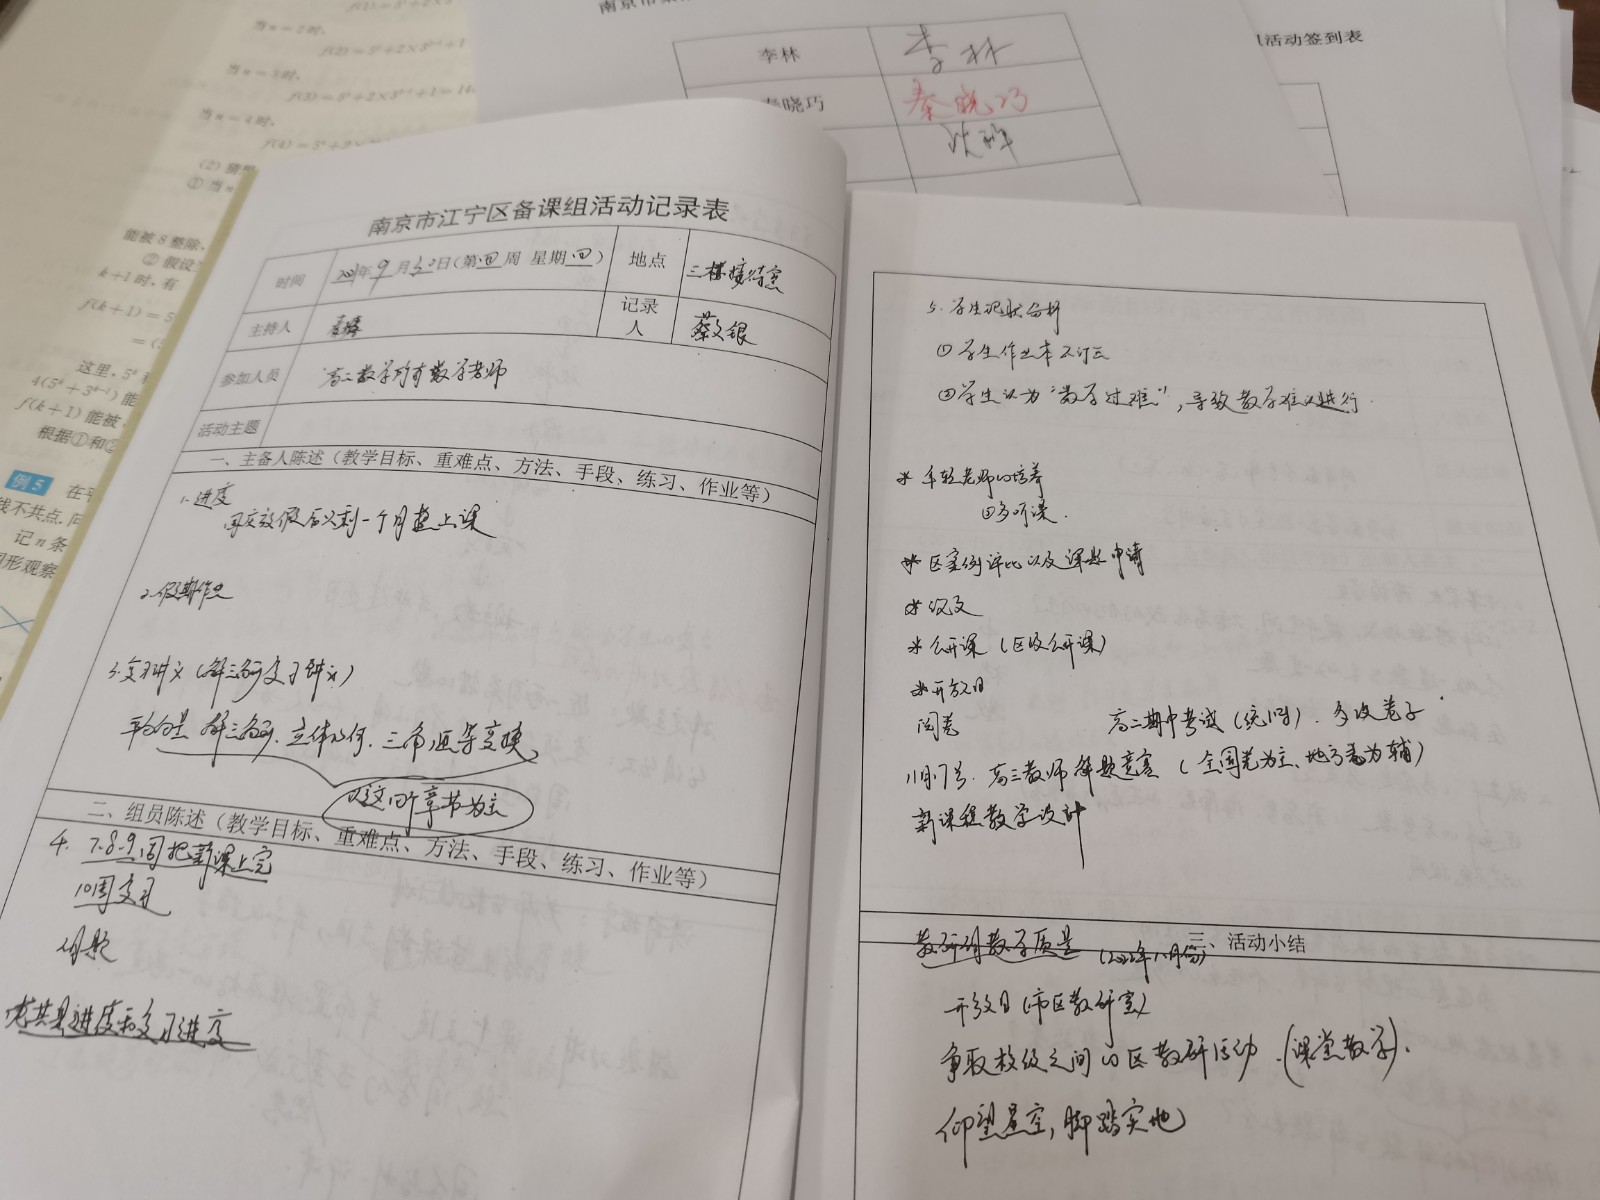 当n=2时,
当n=3时,
当n=4时,
能被8整除.
② 假设
k+1时,有
f(k+1)=5
这里,5ᵏ
f(k+1)能被
根据①和②
例5 在平
线不共点.
记n条
形观察
活动签到表
李林 李林
晓巧 秦晓巧
南京市江宁区备课组活动记录表
时间 2021年9月30日(第四周 星期四) 地点 三楼接待室
主持人 记录人 蔡文银
参加人员 高二数学所有数学老师
活动主题
一、主备人陈述(教学目标、重难点、方法、手段、练习、作业等)
1.进度
国庆放假后只剩一个月整上课
2.假期作业
3.复习讲义(解三角形复习讲义)
解三角形.立体几何.三角恒等变换
以这四个章节为主
二、组员陈述(教学目标、重难点、方法、手段、练习、作业等)
4. 7.8.9周把新课上完
10周复习
进度和复习进度
5.学生现状分析
①学生作业本不订正
②学生认为“数学过难”,导致教学难以进行.
* 年轻老师的培养
①多听课.
* 区案例评比以及课题申请
* 论文
* 公开课(区级公开课)
* 开放日
阅卷 高二期中考试(统归).多改卷子
11月7号.高三教师解题竞赛(全国卷为主、地方卷为辅)
新课程教学设计
三、活动小结
开放日(市区教研室)
争取校级之间的区教研活动.(课堂教学).
仰望星空,脚踏实地